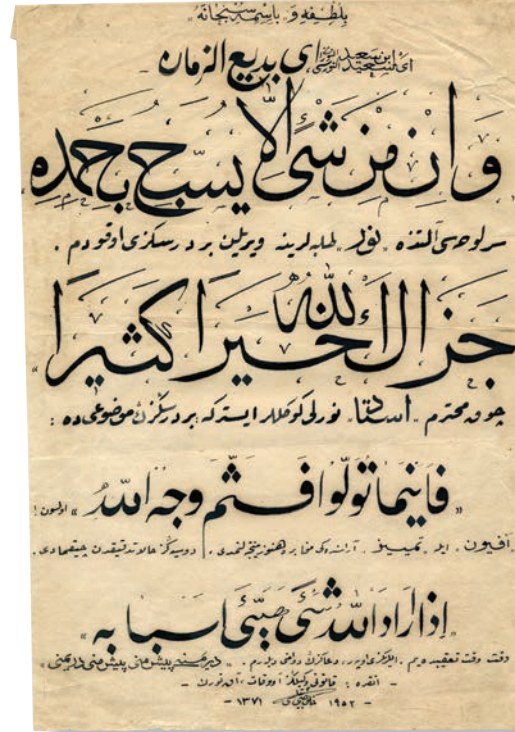 بلطفه و باسمه سبحانه
ای ابن سعيد النورسی ای بديع الزمان
وان من شئ الا يسبح بحمده
سرلوحه‌سی آلتنده نور طلبه‌لرينه ويريلن بر درسكزی اوقودم .
جزاك الله خيرا كثيرا
چوق محترم استاد نورلی كوكللر ايستركه بر درسكزك موضوعی ده :
« فاينما تولوا فثم وجه الله » اولسون !
آفيون ايله تمييز آراسنده‌كی هنوز دوسيه‌كز حالا تدقيقدن چيقمادی .
« اذا اراد الله شئ هيئ اسبابه »
وقت وقت تعقيبده‌يم . اللركزی اوپر ، دعاكزك دوامنی ديلرم . « پيش منی پيش منی در يمنی »
- انقره : قانونی وكيلكز آووقات -
- ١٩٥٢ ١٣٧١ -